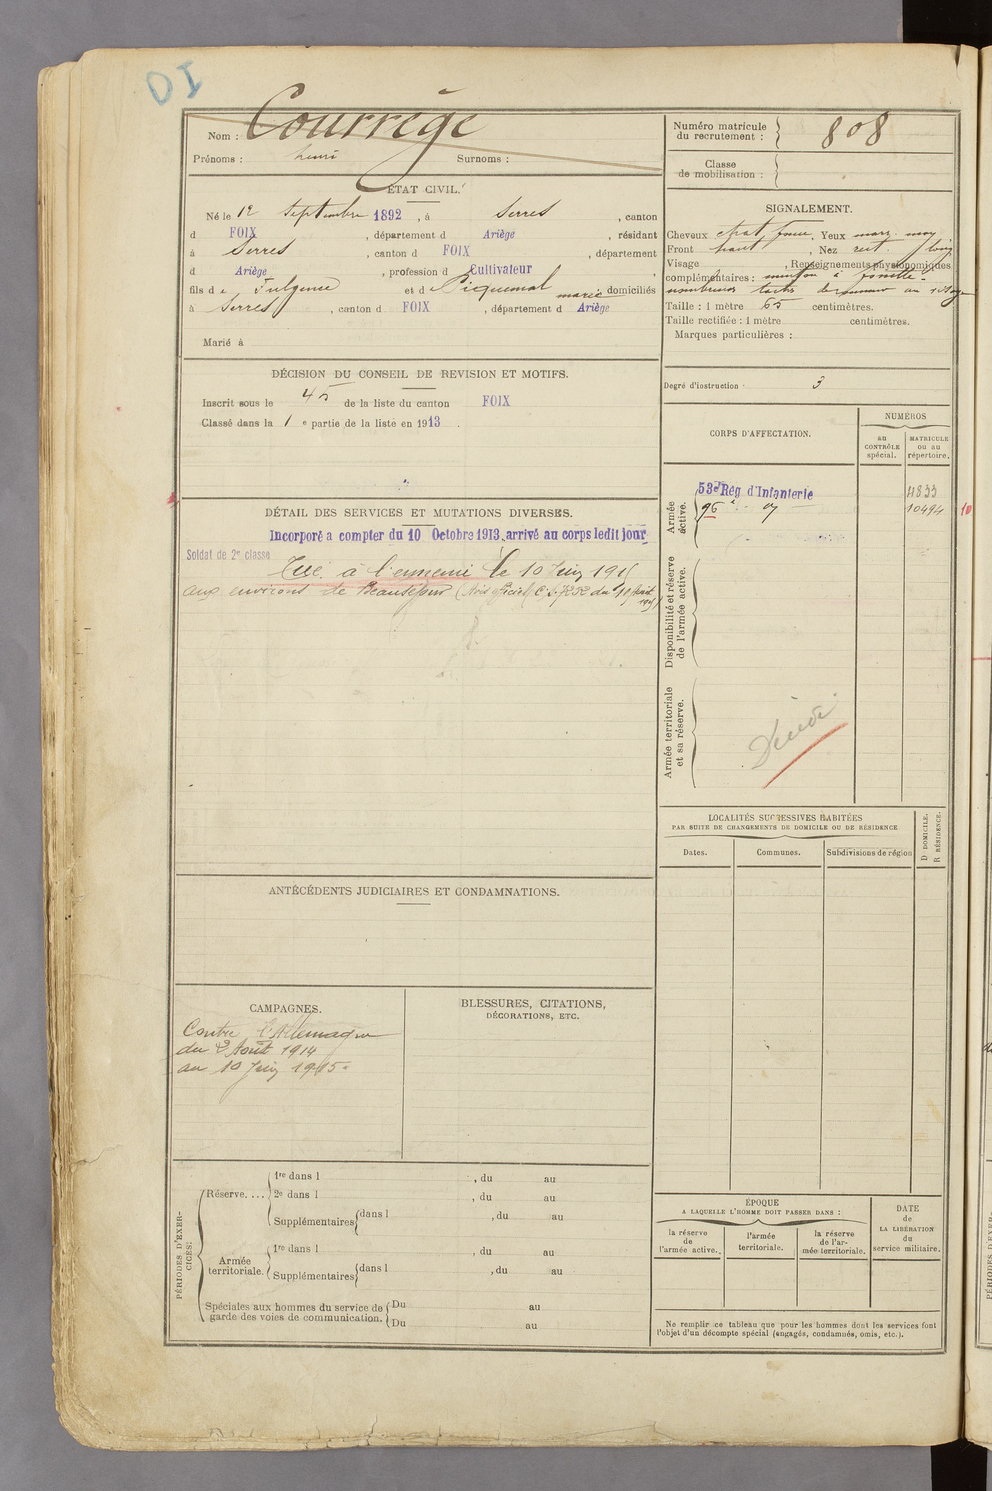 Nom : Courrège
Prénoms : henri Surnoms :
Numéro matricule du recrutement : 808
Classe de mobilisation :
ÉTAT CIVIL.
Né le 12 Septembre 1892, à Serres, canton
d FOIX, département d Ariège, résidant
à Serres, canton d FOIX, département
d Ariège, profession d Cultivateur,
fils de Fulgence et de Picquemal marie, domiciliés
à Serres, canton d FOIX, département d Ariège
Marié à
SIGNALEMENT.
Cheveux chat. Yeux
Front haut, Nez rect. long
Visage , Renseignements physionomiques
complémentaires : menton à fossette
nombreuses taches de au visage
Taille : 1 mètre 65 centimètres.
Taille rectifiée : 1 mètre centimètres.
Marques particulières :
Degré d'instruction : 3
DÉCISION DU CONSEIL DE REVISION ET MOTIFS.
Inscrit sous le 45 de la liste du canton FOIX
Classé dans la 1e partie de la liste en 1913.
CORPS D'AFFECTATION.
NUMÉROS
au CONTRÔLE spécial.
MATRICULE ou au répertoire.
Armée active.
53e Rég d'Infanterie 4833
96e 10494
10
Disponibilité et réserve de l'armée active.
Armée territoriale et sa réserve.
Décédé
DÉTAIL DES SERVICES ET MUTATIONS DIVERSES.
Incorporé a compter du 10 Octobre 1913, arrivé au corps ledit jour
Soldat de 2e classe
Tué à l'ennemi le 10 Juin 1915
aux environs de Beauséjour (Avis officiel
LOCALITÉS SUCCESSIVES HABITÉES
PAR SUITE DE CHANGEMENTS DE DOMICILE OU DE RÉSIDENCE
Dates. Communes. Subdivisions de région
D DOMICILE.
R RÉSIDENCE.
ANTÉCÉDENTS JUDICIAIRES ET CONDAMNATIONS.
CAMPAGNES.
Contre l'Allemagne
du 3 Août 1914
au 10 Juin 1915.
BLESSURES, CITATIONS,
DÉCORATIONS, ETC.
PÉRIODES D'EXERCICES:
Réserve....
1re dans l , du au
2e dans l , du au
Supplémentaires dans l , du au
Armée territoriale.
1re dans l , du au
Supplémentaires dans l , du au
Spéciales aux hommes du service de
garde des voies de communication.
Du au
Du au
ÉPOQUE
A LAQUELLE L'HOMME DOIT PASSER DANS :
la réserve de l'armée active.
l'armée territoriale.
la réserve de l'armée territoriale.
DATE de LA LIBÉRATION du service militaire.
Ne remplir ce tableau que pour les hommes dont les services font
l'objet d'un décompte spécial (engagés, condamnés, omis, etc.).